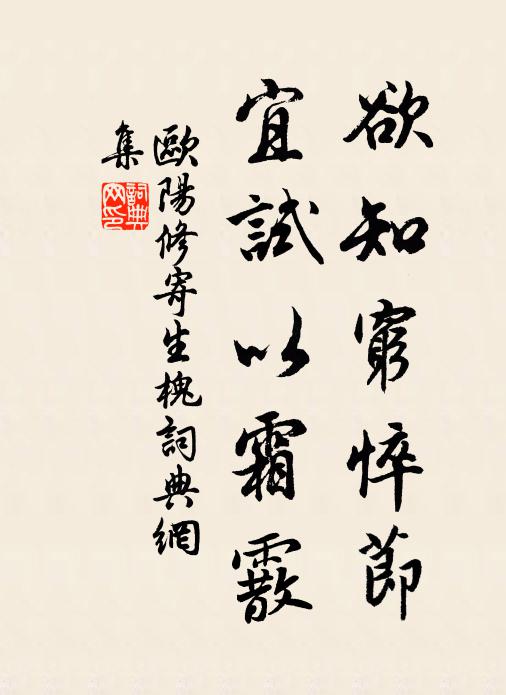 欲知窮悴節
宜試以霜霰
歐陽修寄生槐詞典網
集
詞典
网印